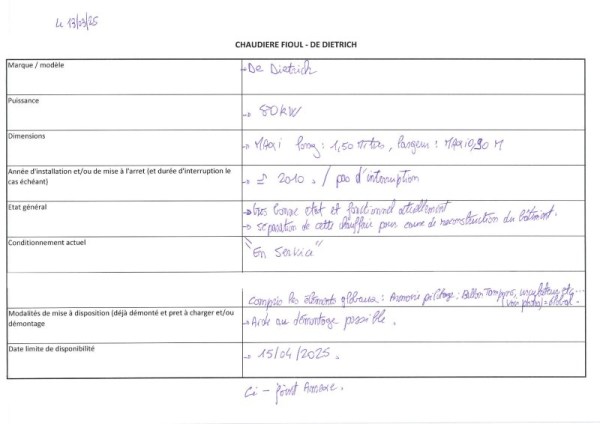 Le 13/03/25
CHAUDIERE FIOUL - DE DIETRICH
Marque / modèle
De Dietrich
Puissance
80 KW
Dimensions
Maxi long : 1,50 , largeur : Maxi 0,90 M
Année d'installation et/ou de mise à l'arret (et durée d'interruption le
cas échéant)
2010. / pas d'interruption
Etat général
bonne état et fonctionnel actuellement
séparation de cette pour cause de reconstruction du bâtiment.
Conditionnement actuel
"En Service"
Compris les éléments : Armoire pilotage, Ballon Tampon, etc...
Modalités de mise à disposition (déjà démonté et pret à charger et/ou
démontage
Aide au démontage possible.
Date limite de disponibilité
15/04/2025
Ci - joint Annexe.